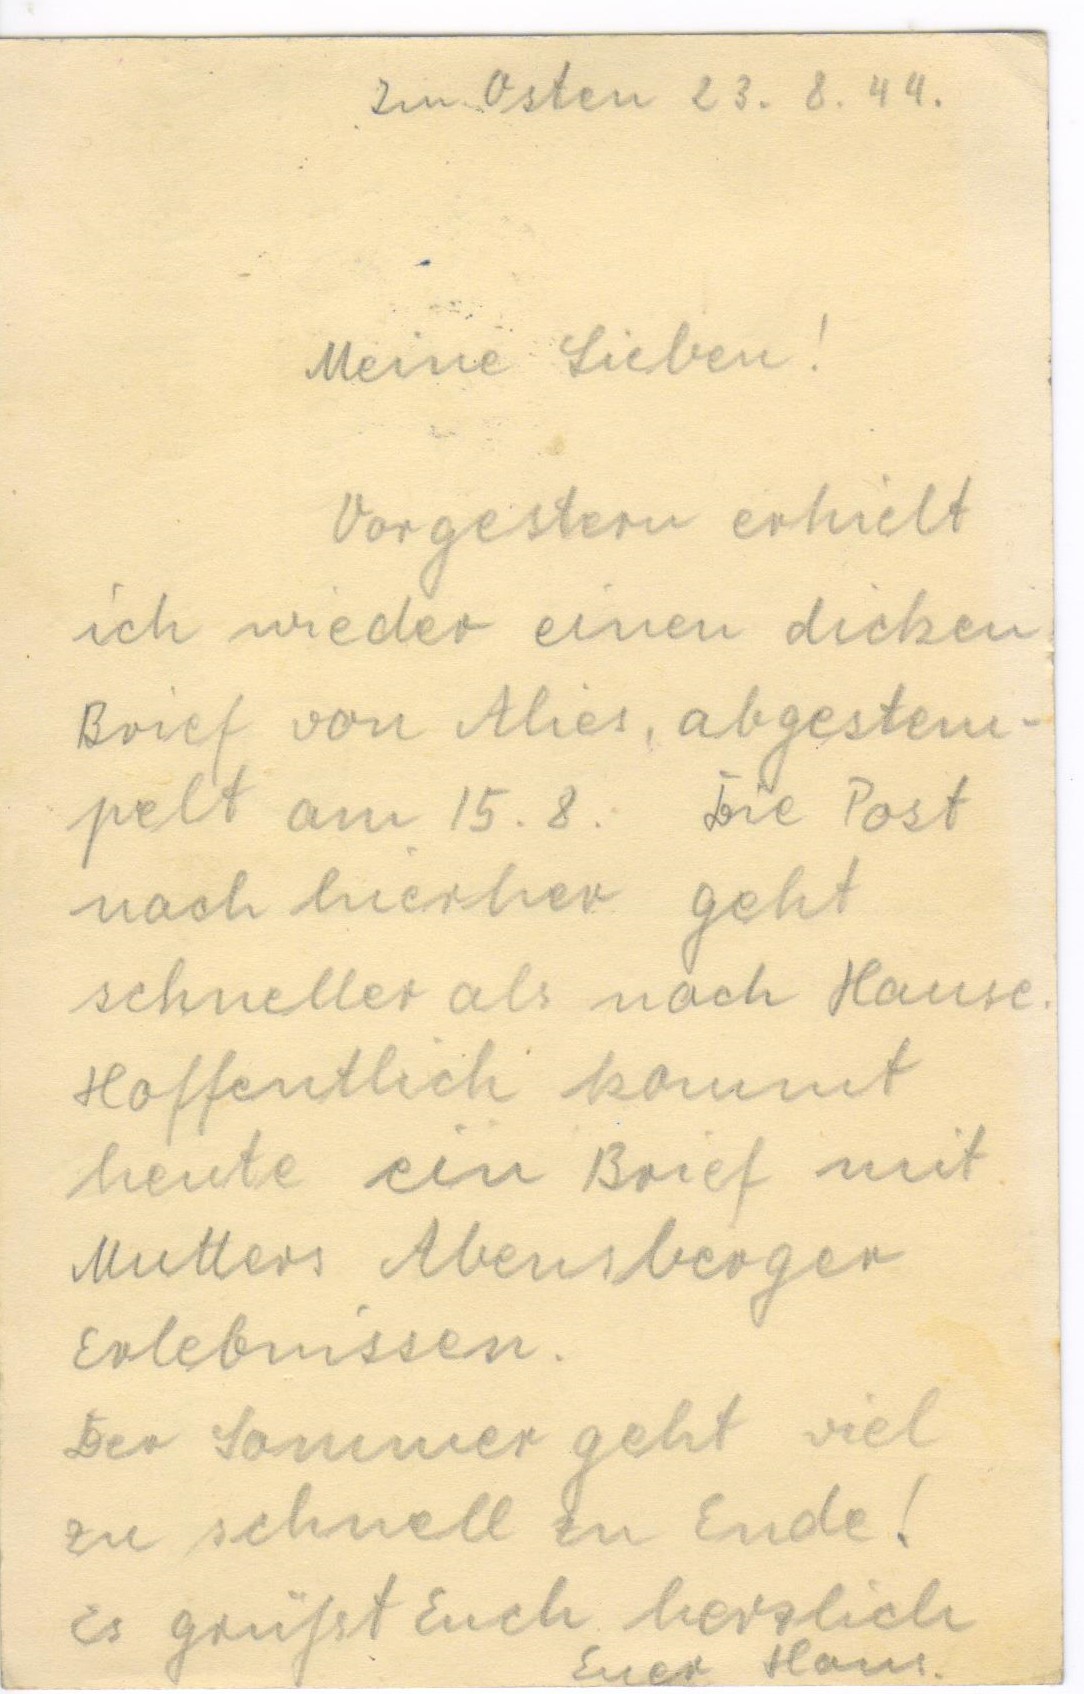 Im Osten 23. 8. 44.
Meine Lieben!
Vorgestern erhielt
ich wieder einen dicken
Brief von Alies, abgestem-
pelt am 15. 8. Die Post
nach hierher geht
schneller als nach Hause.
Hoffentlich kommt
heute ein Brief mit
Mutters Abensberger
Erlebnissen.
Der Sommer geht viel
zu schnell zu Ende!
Es grüßt Euch herzlich
Euer Hans.